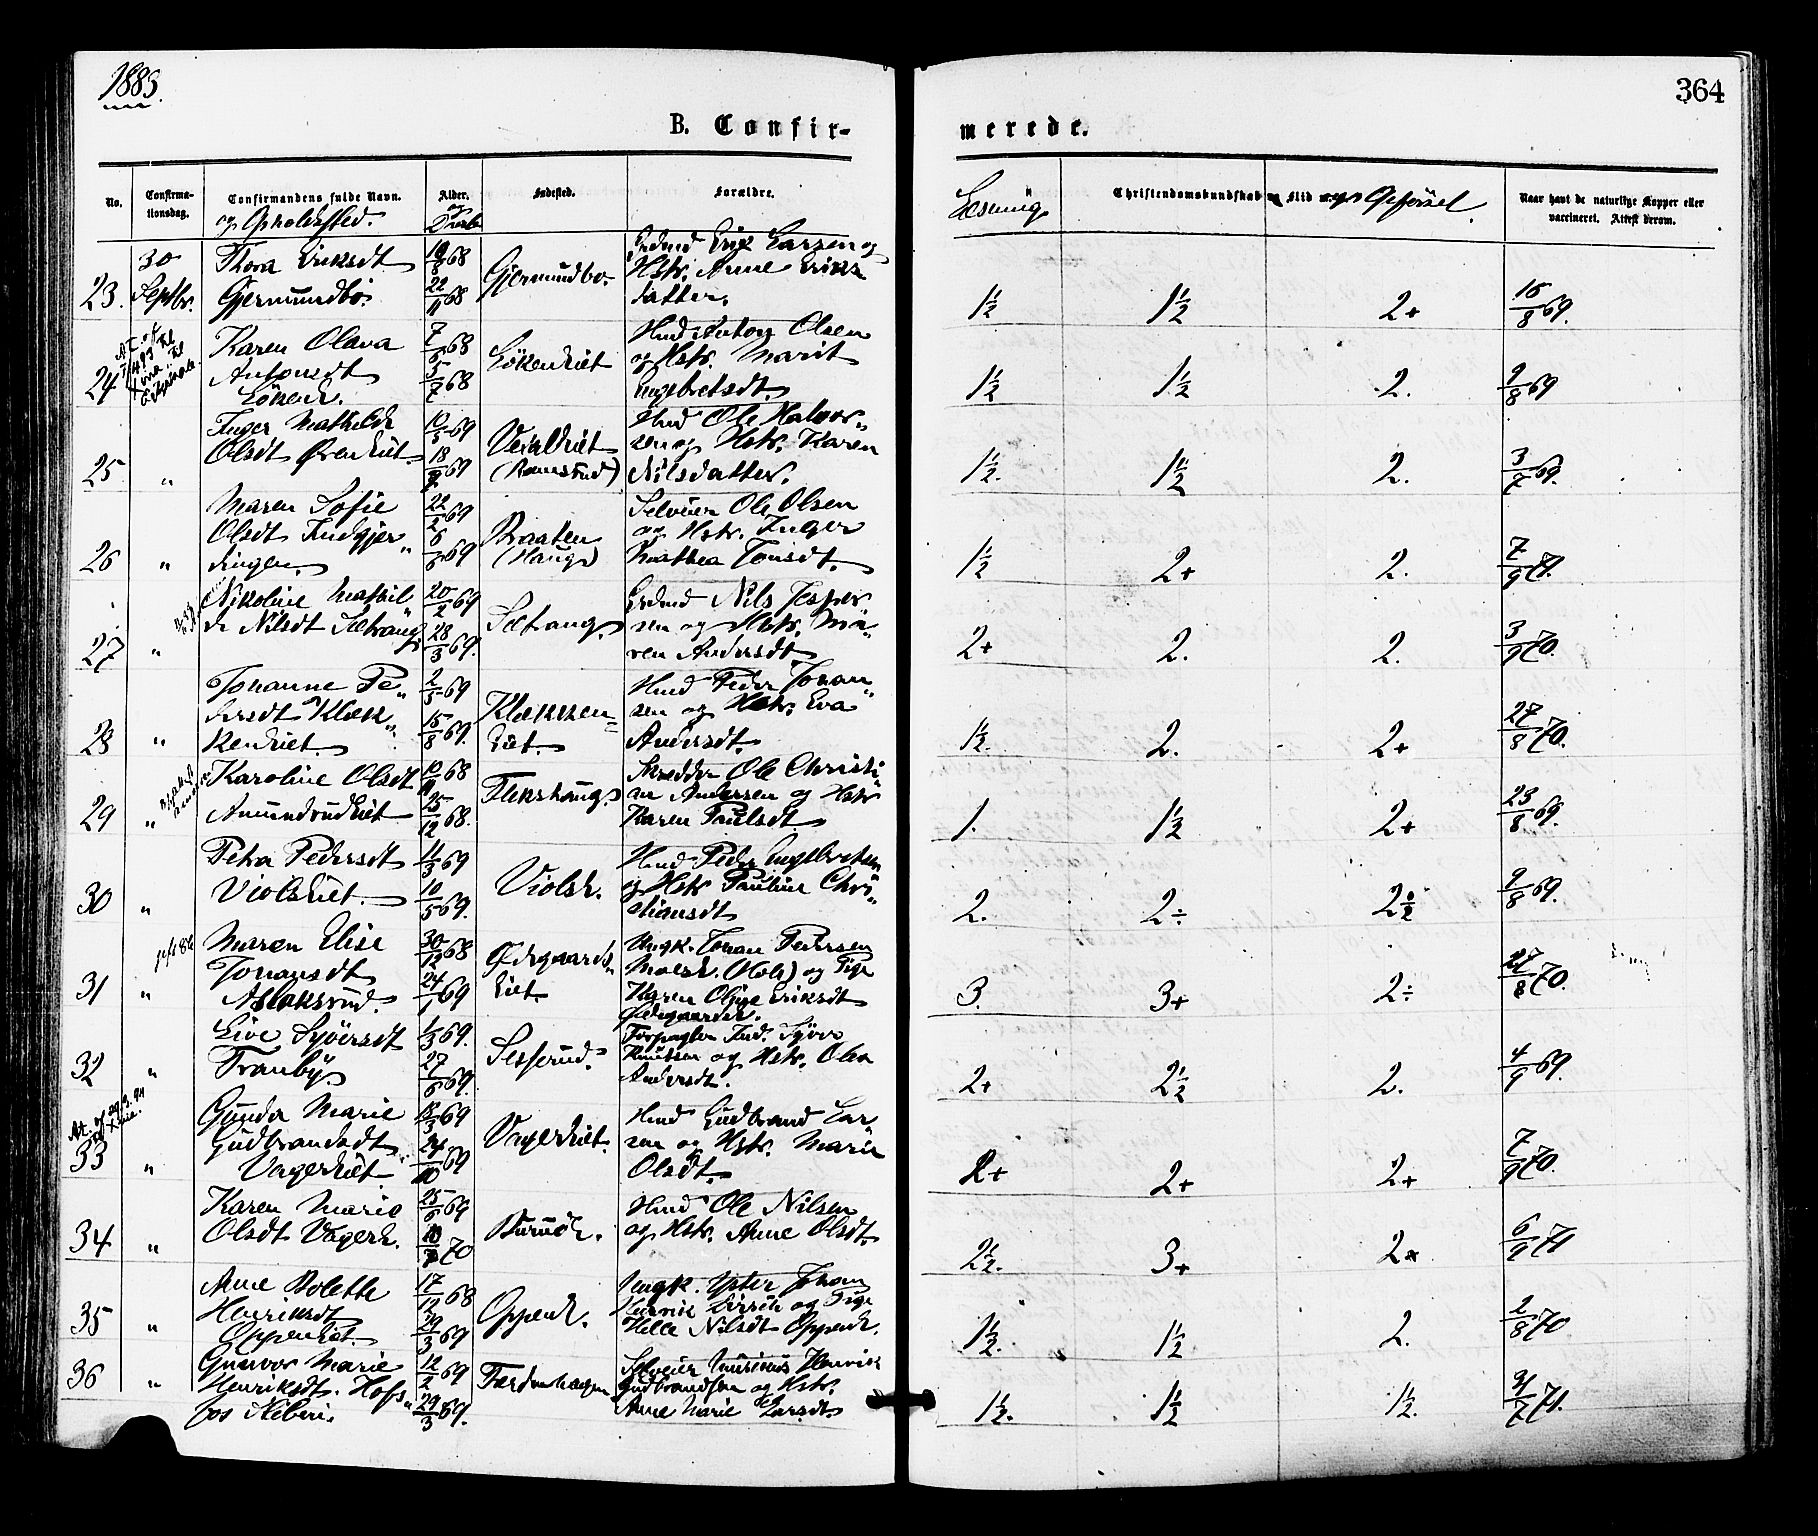 1883.
364
B. Confir-
merede.
No.
Confirma-
tionsdag.
Confirmandens fulde Navn.
og Opholdssted.
Alder.
og
Daab
Fødested.
Forældre.
Læsning
Christendomskundskab
Flid og Opførsel.
Naar havt de naturlige Kopper eller
vaccineret. Attest derom.
23. 30 Septbr.
Thora Eriksdt
Gjermundbo.
68
22/11 68
Gjermundbo.
Grdmd Erik Larsen og
Hstr. Anne Eriks
datter.
1½ 1½ 2+ 16/8 69.
24
Karen Olava
Antonsdt
Lökene.
7/5 68
5/7 68
Lökeneiet
Hmd Anton Olsen
og Hstr. Marit
Engebretsdt.
1½ 1½ 2. 2/8 69
25 "
Inger Mathilde
Olsdt
69
18 69
(Ramsrud)
Hmd Ole Halvor-
sen og Hstr. Karen
Nilsdatter.
1½. 1½ 2. 3/7 69.
26 "
Maren Sofie
Olsdt Indgjer-
dingen.
22/2 69
6 69
Braaten
(Haug)
Selveier Ole Olsen
og Hstr. Inger
Mathea Jonsdt.
1½ 2+ 2. 7/9 71.
27 "
Nikoline Mathil-
de Nilsdt Sætrang
20/2 69
28/3 69.
Sætrang.
Grdmd Nils Jesper-
sen og Hstr. Ma-
ren Andersdt.
2+ 2. 2. 3/9 70.
28 "
Johanne Pe-
dersdt Klæk-
keneiet.
2/5 69
15/8 69.
Klækken-
eiet.
Hmd Peder Johan-
sen og Hstr. Eva
Andersdt.
1½. 2. 2+ 27/8 70.
29 "
Karoline Olsdt
Amundrudeiet
68
25/12 68.
Flikshaug.
Skredder Ole Christi-
an Andersen og Hstr
Karen Paulsdt.
1. 1½ 2+ 23/8 69.
30 "
Petra Pedersdt
Violseiet.
11/3 69
10/5 69.
Violse.
Hmd Peder Engebretsen
og Hstr Pauline Chri-
stiansdt
2. 2÷ 2/8 69.
31 "
Maren Elise
Johansdt
Aslaksrud.
30/12 68
24/1 69
Ødegaards-
eiet.
Ungk. Johan Pedersen
Moesk. (Hole) og Pige
Karen Olive Eriksdt
Ødegaarden.
3. 3+ 2÷ 27/8 70.
32 "
Live Syversdt
Tranby.
1/3 69.
27 69.
Sesserud.
Forpagter Ind. Syver
Knutsen og Hstr. Olea
Andersdt.
2+ 2½ 2. 4/9 69.
33 "
Gunda Marie
Gudbrandsdt
Vagereiet
69
24/10 69
Vagereiet.
Hmd Gudbrand Lar-
sen og Hstr. Marie
Olsdt.
2+ 2+ 2+ 7/9 70.
34 "
Karen Marie
Olsdt Vagere.
25 69
70
Hmd Ole Nilsen
og Hstr. Anne Olsdt.
2½. 3+ 2+ 6/9 71
35 "
Anne Bolette
Henriksdt
Oppeneiet.
17/12 68
29/3 69
Oppene.
Ungk. Johan
Henrik og Pige
Helle Nilsdt Oppene.
1½. 1½ 2. 2/8 70
36 "
Gunvor Marie
Henriksdt. Høfs-
fos Sliberi.
12/2 69
29/3 69.
Færdenhagen
Selveier Henrik
Gudbrandsen og Hstr.
Anne Marie Larsdt
1½. 1½ 1½. 71.